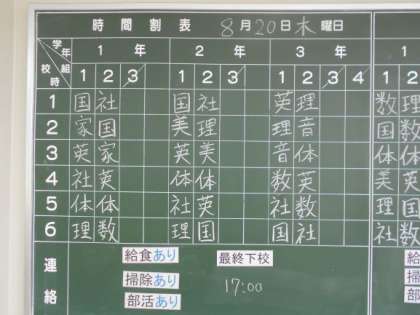 時間割表 8月20日 木曜日
学年 1年 2年 3年
校時 組 1 2 3 1 2 3 1 2 3 4 1 2
1 国 社 国 社 英 理 数 理
2 家 国 美 理 理 音 国 数
3 英 家 英 美 音 体 体 体
4 社 英 体 体 数 英 美 英
5 体 体 社 英 社 数 理 国
6 理 数 理 国 国 社 社 数
連絡
給食あり 最終下校 給
掃除あり 17:00 掃
部活あり 部